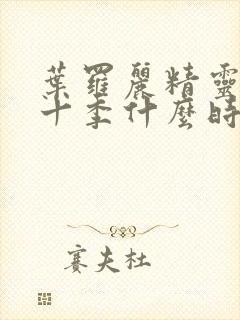 葉羅麗精靈
十季什麼時
賽夫杜